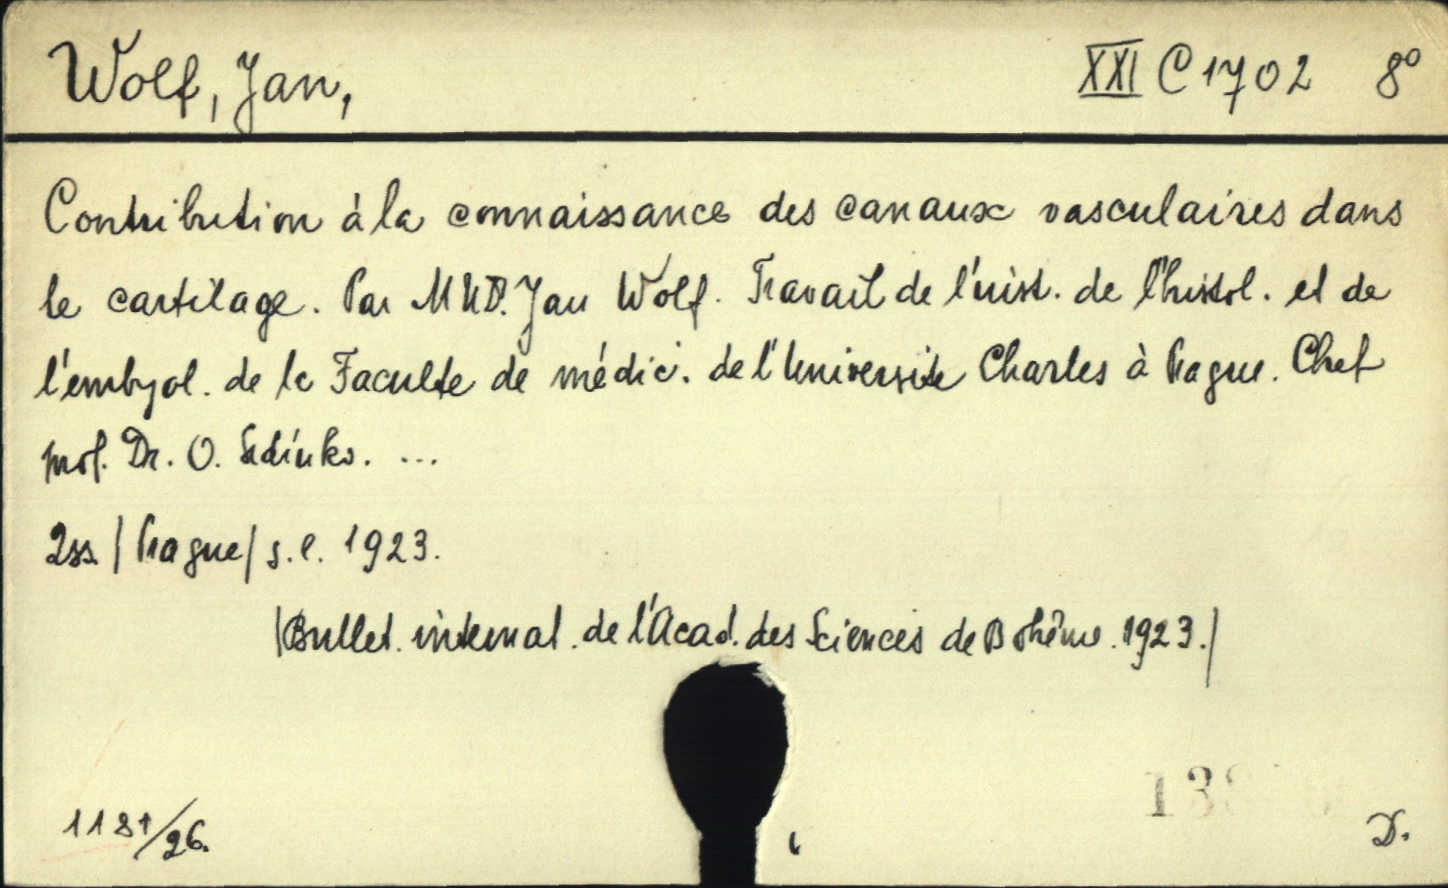 Wolf, Jan, XXI C 1702 8°
Contribution à la connaissance des canaux vasculaires dans
le cartilage. Par MUD. Jan Wolf. Travail de l'inist. de l'histol. et de
l'embyol. de la Faculte de médic. de l'Universite Charles à Prague. Chef
prof. Dr. O. Srdínko. ...
2ss. | Prague | s. l. 1923.
|Bullet. internat. de l'Acad. des Sciences de Bohême. 1923.|
1181/26.
D.